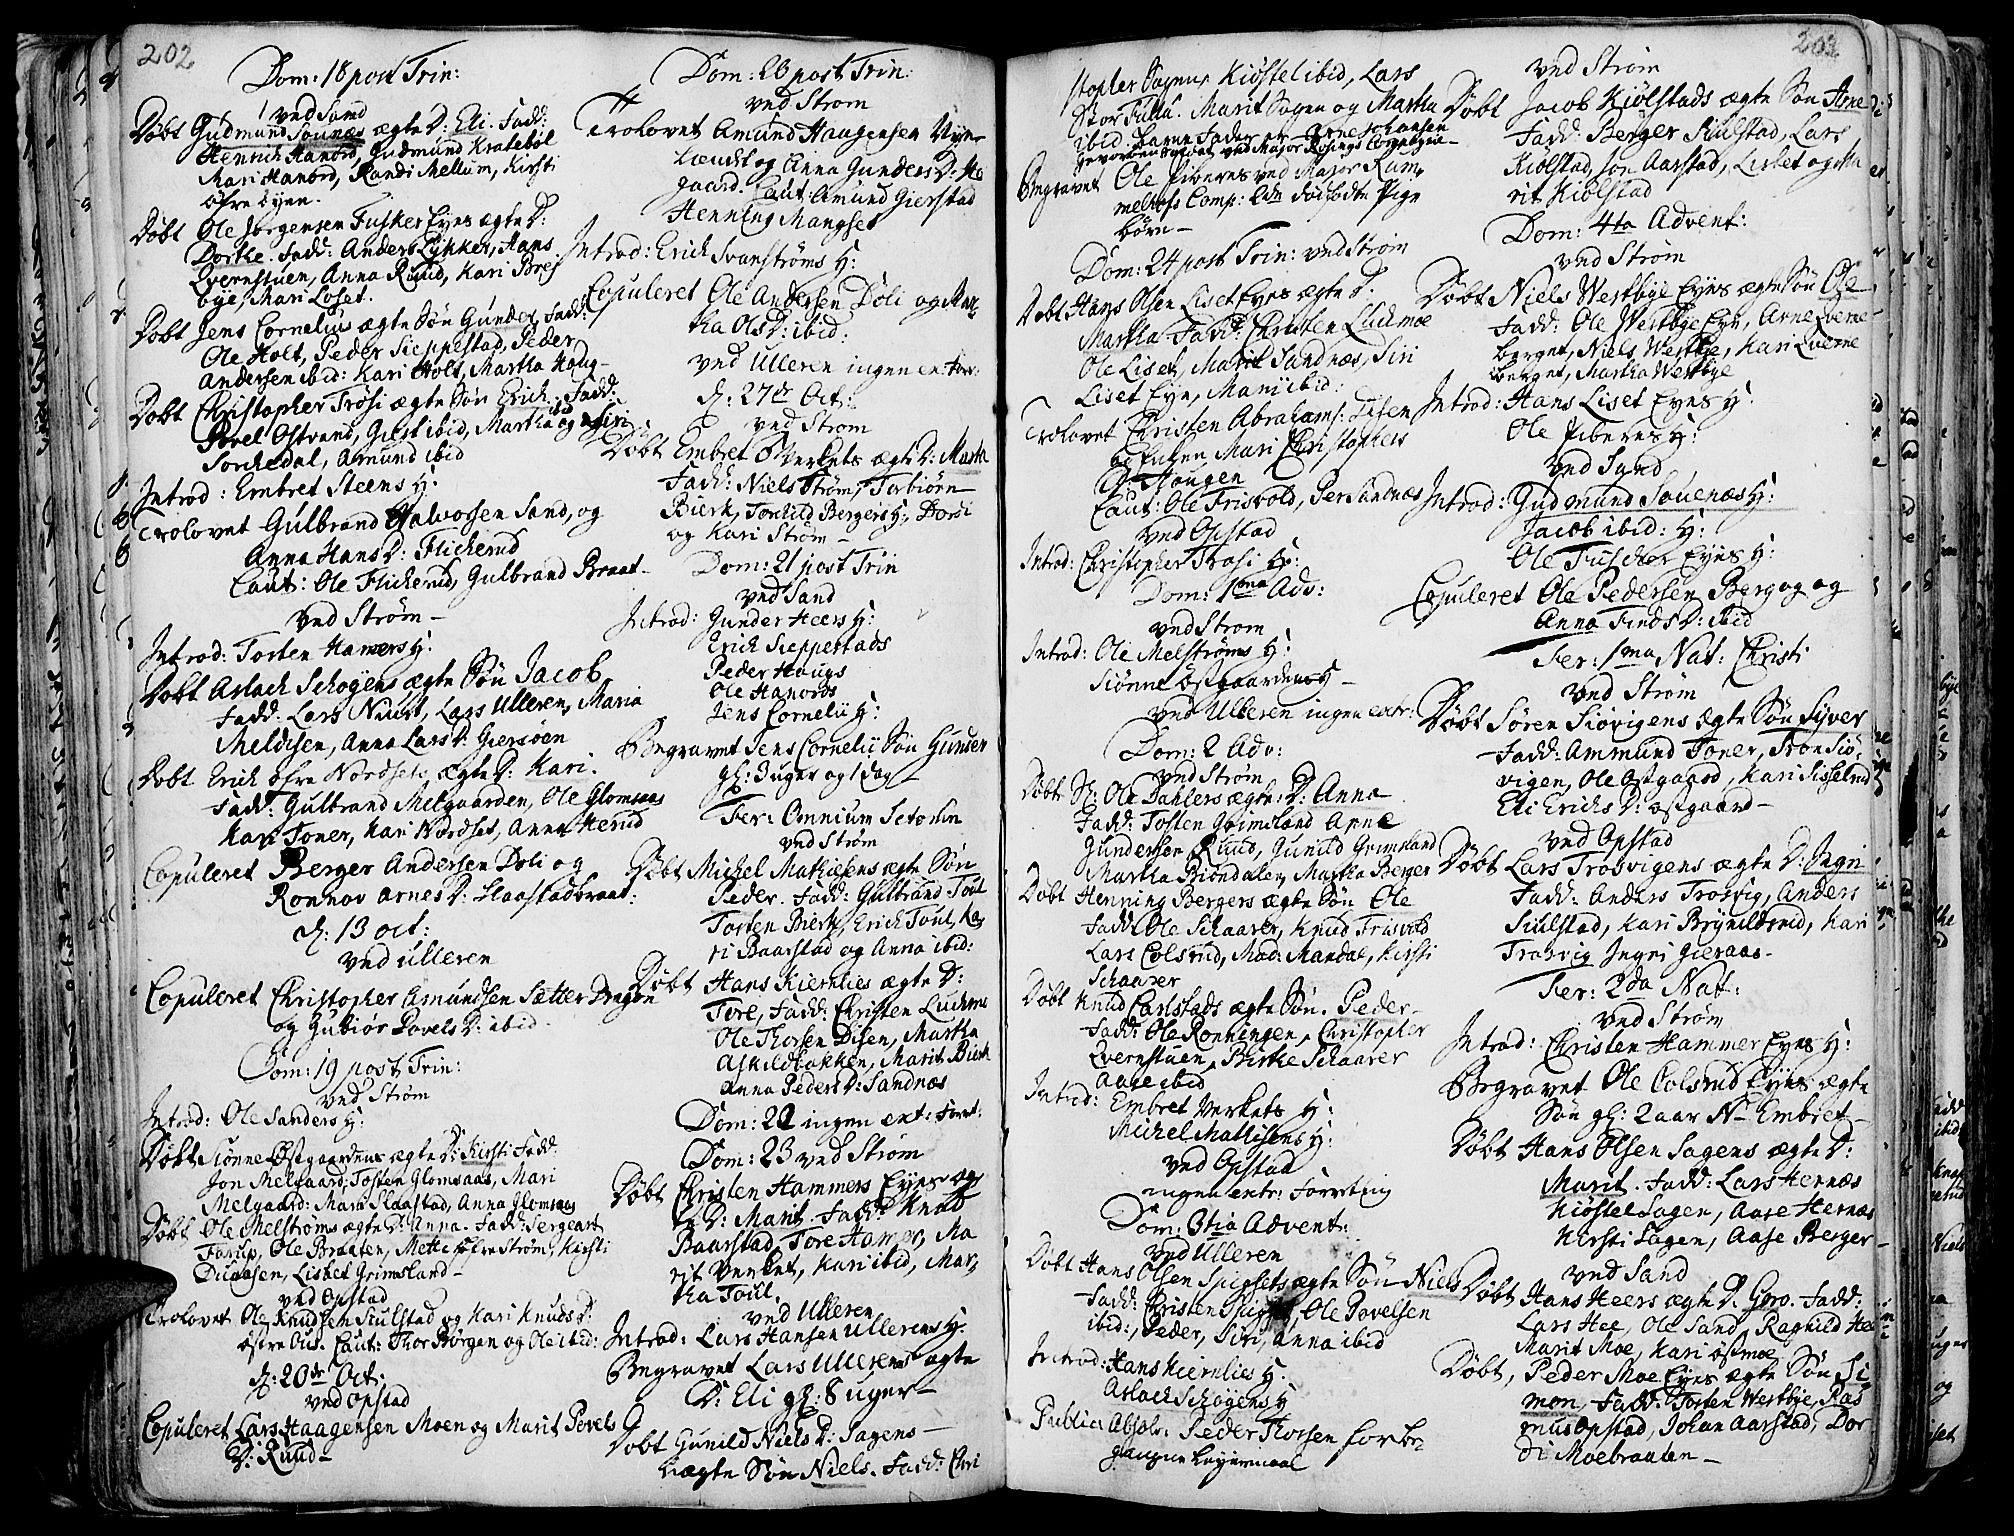 202
Dom: 18 post Trin:
ved Sand
Døbt Gudmund Sounæs ægte D: Eli. Fadd:
Henrich Hanord, Gudmund Kratebøl
Mari Hanord, Randi Mellum, Kirsti
øfre Eyen.
Døbt Ole Jørgensen Fusker Eyes ægte D:
Dorthe. Fadd: Anders Lykker, Hans
Qvernstuen, Anna Ruud, Kari Bres
bye, Mari Løset.
Døbt Jens Cornelius ægte Søn Gunder, Fadd:
Ole Holt, Peder Sieppestad, Peder
Andersen ibid: Kari Holt, Martha Haug
Døbt Christopher Trosi ægte Søn Erich. Fadd:
Povel Ostrand, Giest ibid, Martha ibid og Siri
Sonkedal, Amund ibid
Introd: Embret Steens H:
Trolovet Gulbrand Halvorsen Sand, og
Anna Hans D: Flicherud
Caut: Ole Flicherud, Gulbrand Braat
ved Strøm
Introd: Torsten Hamers H:
Døbt Aslach Schøgens ægte Søn Jacob
Fadd: Lars Nuust, Lars Ulleren, Maria
Meldisen, Anna Lars D: Giersøen
Døbt Erich øfre Nordsets ægte D: Kari.
Fadd: Gulbrand Melgaarden, Ole Glomsaas
Kari Toner, Kari Nordset, Anna Herud
Copuleret Berger Andersen Doli og
Ronnov Arnes D: Slaastadbraat:
d: 13 oct:
ved Ulleren
Copuleret Christopher Amundsen Sætter Dragon
og Gubiør Povels D: ibid.
Dom: 19 post Trin:
ved Strøm
Introd: Ole Sanders H:
Døbt Siønne Østgaardens ægte D: Kirsti Fadd:
Jon Melgaard, Tosten Glomsaas, Mari
Melgaard: Mari Slaastad, Anna Glomsaas
Døbt Ole Melstrøms ægte D: Anna. Fadd: Sergeant
Forup, Ole Braaten, Mette øfre Strøm, Kirsti
Duaasen, Lisbet Grimsland
ved Opstad
Trolovet Ole Knudsen Siulstad og Kari Knuds D:
østre Ous. Caut: Thor Borgen og Ole ibid:
d: 20de Oct:
ved Opstad
Copuleret Lars Haagensen Moen og Marit Povels
D: Ruud
Dom: 20 post Trin:
ved Strøm
Trolovet Amund Haagensen Nyn
Lændet og Anna Gunders D: Ho
gaard. Caut: Amund Gierstad
Henning Mangset
Introd: Erich Svanstrøms H:
Copuleret Ole Andersen Doli og Mar
tha Ols D: ibid:
ved Ulleren ingen en: forr:
d: 27de Oct:
ved Strøm
Døbt Embret Verkets ægte D: Marta
Fadd: Niels Strøm, Torbiørn
Bierk, Tonhild Bergers H:, Dordi
og Kari Strøm
Dom: 21 post Trin
ved Sand
Introd: Gunder Heers H:
Erich Sieppestads
Peder Haugs
Ole Hanords
Jens Cornelii H:
Begravet Jens Cornelii Søn Gunder
gl: 3 uger og 1 dag
Fer: Omnium Sctorum
ved Strøm
Døbt Michel Mathiesens ægte Søn
Peder. Fadd: Gulbrand Toul
Torsten Bierk, Erich Toul, Ka
ri Baarstad og Anna ibid:
Døbt Hans Kiernlies ægte D:
Tore, Fadd: Christen Luchmo
Ole Thorsen Disen, Martha
Askildbakken, Marit Bierk
Anna Peders D: Sandnæs
Dom: 22 ingen ent: Forret:
Dom: 23 ved Strøm
Døbt Christen Hammers Eyes æg
te D: Marit. Fadd: Knud
Baarstad, Tore Hamer, Ma
rit Verket, Kari ibid, Mar
tha Toul.
ved Ulleren
Introd: Lars Hansen Ullerens H:
Begravet Lars Ullerens ægte
D: Eli gl: 8 uger
Døbt Gunild Niels D: Sagens
uægte Søn Niels. Fadd: Chri
203
stopher Sagen, Kiøstel ibid, Lars
Stor Fulu. Marit Sagen og Martha
ibid. Barne Fader er Arne Johansen
gevorben Soldat ved Major Rosings Compagnie
Begravet Ole Fiberes ved Major Ram
melhofs Comp: 2de dødfødte Pige
børn
Dom: 24 post Trin: ved Strøm
Døbt Hans Olsen Liset Eyes ægte D:
Martha Fadd: Christen Luchmoe
Ole Liset, Marit Sandnæs, Siri
Liset Eye, Mari ibid:
Trolovet Christen Abrahams: Disen
og Enken Mari Christophers
D: Haugen
Caut: Ole Frisvold, Per Sandnæs
ved Opstad
Introd: Christopher Trosi H:
Dom: 1ma Adv:
ved Strøm
Introd: Ole Melstrøms H:
Siønne Østgaardens H
ved Ulleren ingen entr:
Dom: 2 Adv:
ved Strøm
Døbt Sl: Ole Dahlers ægte: D: Anna
Fadd: Tosten Grimsland Arne
Gundersen Ruud, Gunild Grimsland
Martha Biøndalen, Martha Berger
Døbt Henning Bergers ægte Søn Ole
Fadd: Ole Schaarer, Knud Frisvold
Lars Colsrud, Mad: Mandal, Kirsti
Schaarer
Døbt Knud Carlstads ægte Søn. Peder
Fadd: Ole Ronningen, Christopher
Qvernstuen, Birthe Schaarer
Aase ibid
Introd: Embret Verkets H:
Michel Mathisens H:
ved Opstad
ingen entr: Forretning
Dom: 3tia Advent:
ved Ulleren
Døbt Hans Olsen Spigsets ægte Søn Niels
Fadd: Christen Spigset, Ole Povelsen
ibid:, Peder, Siri, Anna ibid
Introd: Hans Kiernlies H:
Aslach Schøgens H
Public: Absolv: Peder Thorsen for be
gangne Leyermaal
ved Strøm
Døbt Jacob Kiølstads ægte Søn Arne
Fadd: Berger Siulstad, Lars
Kiølstad, Jon Aarstad, Lisbet og Ma
rit Kiølstad
Dom: 4ta Advent:
ved Strøm
Døbt Niels Westbye Eyes ægte Søn Ole
Fadd: Ole Westbye Eye, Arne Qverne
berget, Niels Westbye, Kari Qverne
berget, Martha Westbye
Introd: Hans Liset Eyes H:
Ole Fiberes H:
ved Sand
Introd: Gudmund Souenæs H:
Jacob ibid: H:
Ole Fuscher Eyes H:
Copuleret Ole Pedersen Berg og og
Anna Finds D: ibid
Fer: 1ma Nat: Christi
ved Strøm
Døbt Søren Siøvigens ægte Søn Syver
Fadd: Ammund Toner, Tron Siø
vigen, Ole Østgaard, Kari Sisselrud
Eli Erichs D: østgaard
ved Opstad
Døbt Lars Trosvigens ægte D: Ingri
Fadd: Anders Trosvig, Anders
Siulstad, Kari Brynildsrud, Kari
Trosvig Ingri Gieraas
Fer: 2da Nat:
ved Strøm
Introd: Christen Hammer Eyes H:
Begravet Ole Colsrud Eyes ægte
Søn gl: 2 aar N- Embret
Døbt Hans Olsen Sagens ægte D:
Marit. Fadd: Lars Hernæs
Kiøstel Sagen, Aase Hernæs
Kirsti Sagen, Aase Berger
ved Sand
Døbt Hans Heers ægte D: Goro. Fadd:
Lars Hee, Ole Sand, Ragnild Hee
Marit Moe, Kari østmoe
Døbt, Peder Moe Eyes ægte Søn Si
mon, Fadd: Torsten Westbye, Ras
mus Opstad, Johan Aarstad, Dor
di Moebraaten